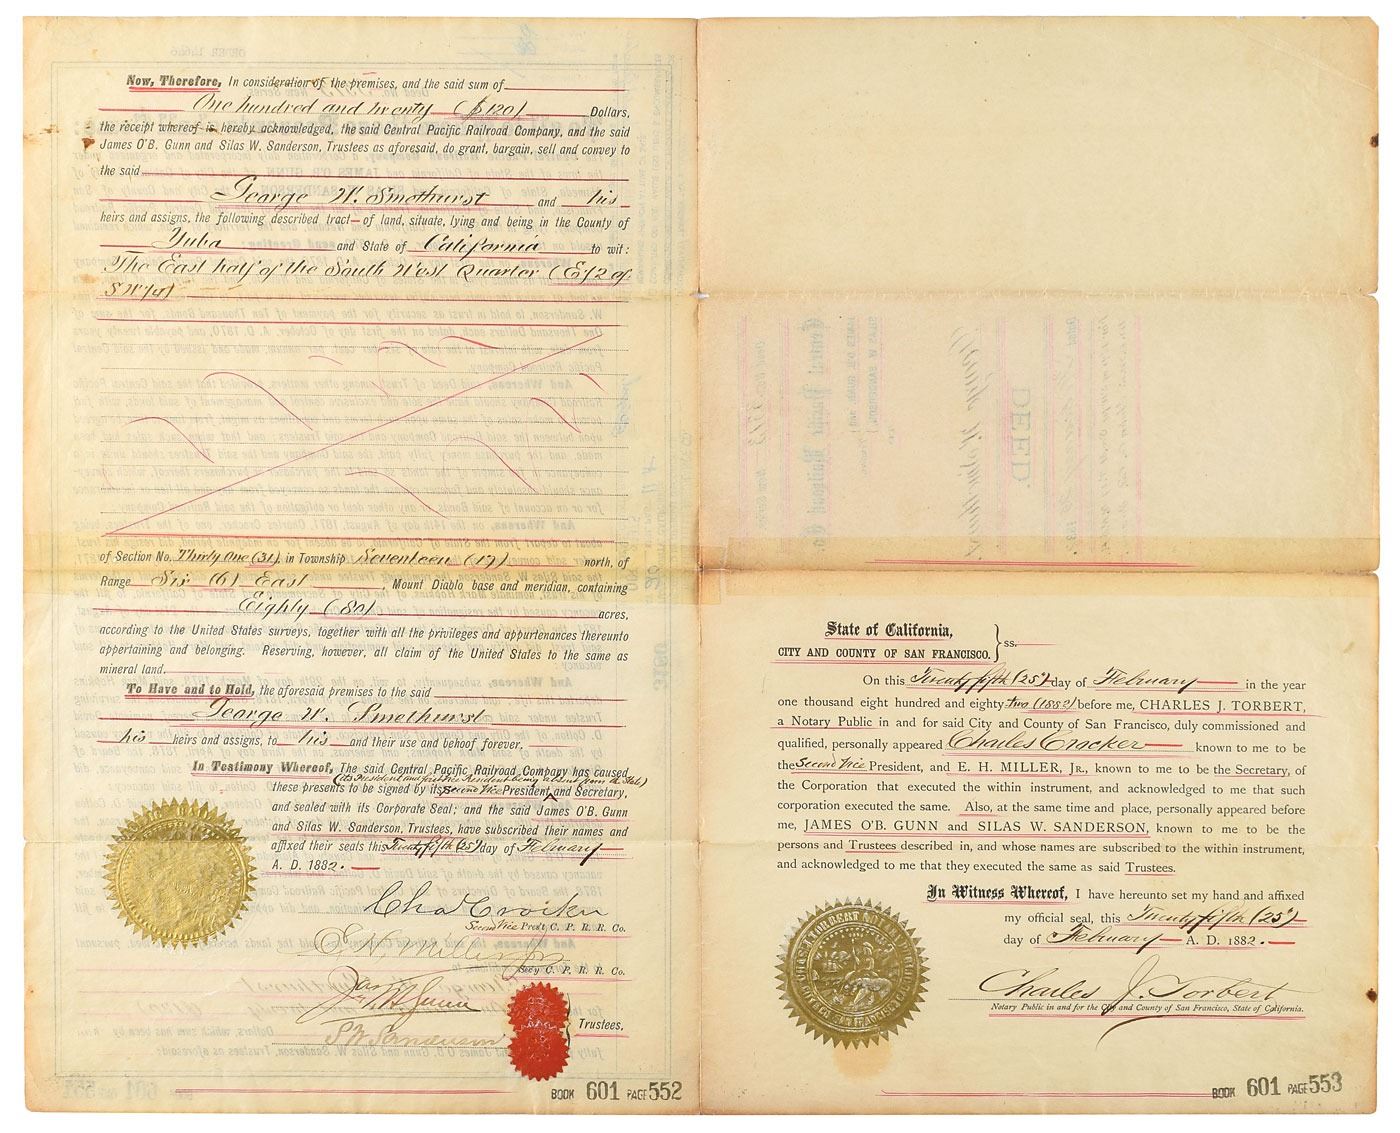 Now, Therefore, In consideration of the premises, and the said sum of
One hundred and twenty ($120) Dollars,
the receipt whereof is hereby acknowledged, the said Central Pacific Railroad Company, and the said
James O'B. Gunn and Silas W. Sanderson, Trustees as aforesaid, do grant, bargain, sell and convey to
the said
George W. Smethurst and his
heirs and assigns, the following described tract of land, situate, lying and being in the County of
Yuba and State of California to wit:
The East half of the South West Quarter (E/2 of
SW/4)
of Section No. Thirty One (31), in Township Seventeen (17) north, of
Range Six (6) East Mount Diablo base and meridian, containing
Eighty (80) acres,
according to the United States surveys, together with all the privileges and appurtenances thereunto
appertaining and belonging. Reserving, however, all claim of the United States to the same as
mineral land.
To Have and to Hold, the aforesaid premises to the said
George W. Smethurst
his heirs and assigns, to his and their use and behoof forever.
In Testimony Whereof, The said Central Pacific Railroad Company has caused
(its President and first Vice President being absent from the State)
these presents to be signed by its Second Vice President and Secretary,
and sealed with its Corporate Seal; and the said James O'B. Gunn
and Silas W. Sanderson, Trustees, have subscribed their names and
affixed their seals this Twenty fifth (25) day of February
A. D. 1882.
Chas Crocker
Second Vice Pres't C. P. R. R. Co.
E. H. Miller Jr
Sec'y C. P. R. R. Co.
Jas. O'B. Gunn
S W Sanderson
Trustees,
BOOK 601 PAGE 552
State of California,
CITY AND COUNTY OF SAN FRANCISCO. } ss.
On this Twenty fifth (25) day of February in the year
one thousand eight hundred and eighty two (1882) before me, CHARLES J. TORBERT,
a Notary Public in and for said City and County of San Francisco, duly commissioned and
qualified, personally appeared Charles Crocker known to me to be
the Second Vice President, and E. H. MILLER, JR., known to me to be the Secretary, of
the Corporation that executed the within instrument, and acknowledged to me that such
corporation executed the same. Also, at the same time and place, personally appeared before
me, JAMES O'B. GUNN and SILAS W. SANDERSON, known to me to be the
persons and Trustees described in, and whose names are subscribed to the within instrument,
and acknowledged to me that they executed the same as said Trustees.
In Witness Whereof, I have hereunto set my hand and affixed
my official seal, this Twenty fifth (25)
day of February A. D. 1882.
Charles J. Torbert
Notary Public in and for the City and County of San Francisco, State of California.
BOOK 601 PAGE 553